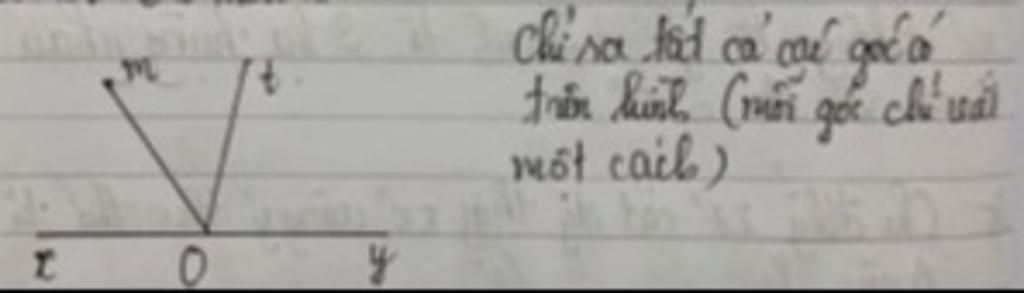 m
t
x O y
Chỉ ra tất cả các góc có
trên hình (mỗi góc chỉ viết
một cách)